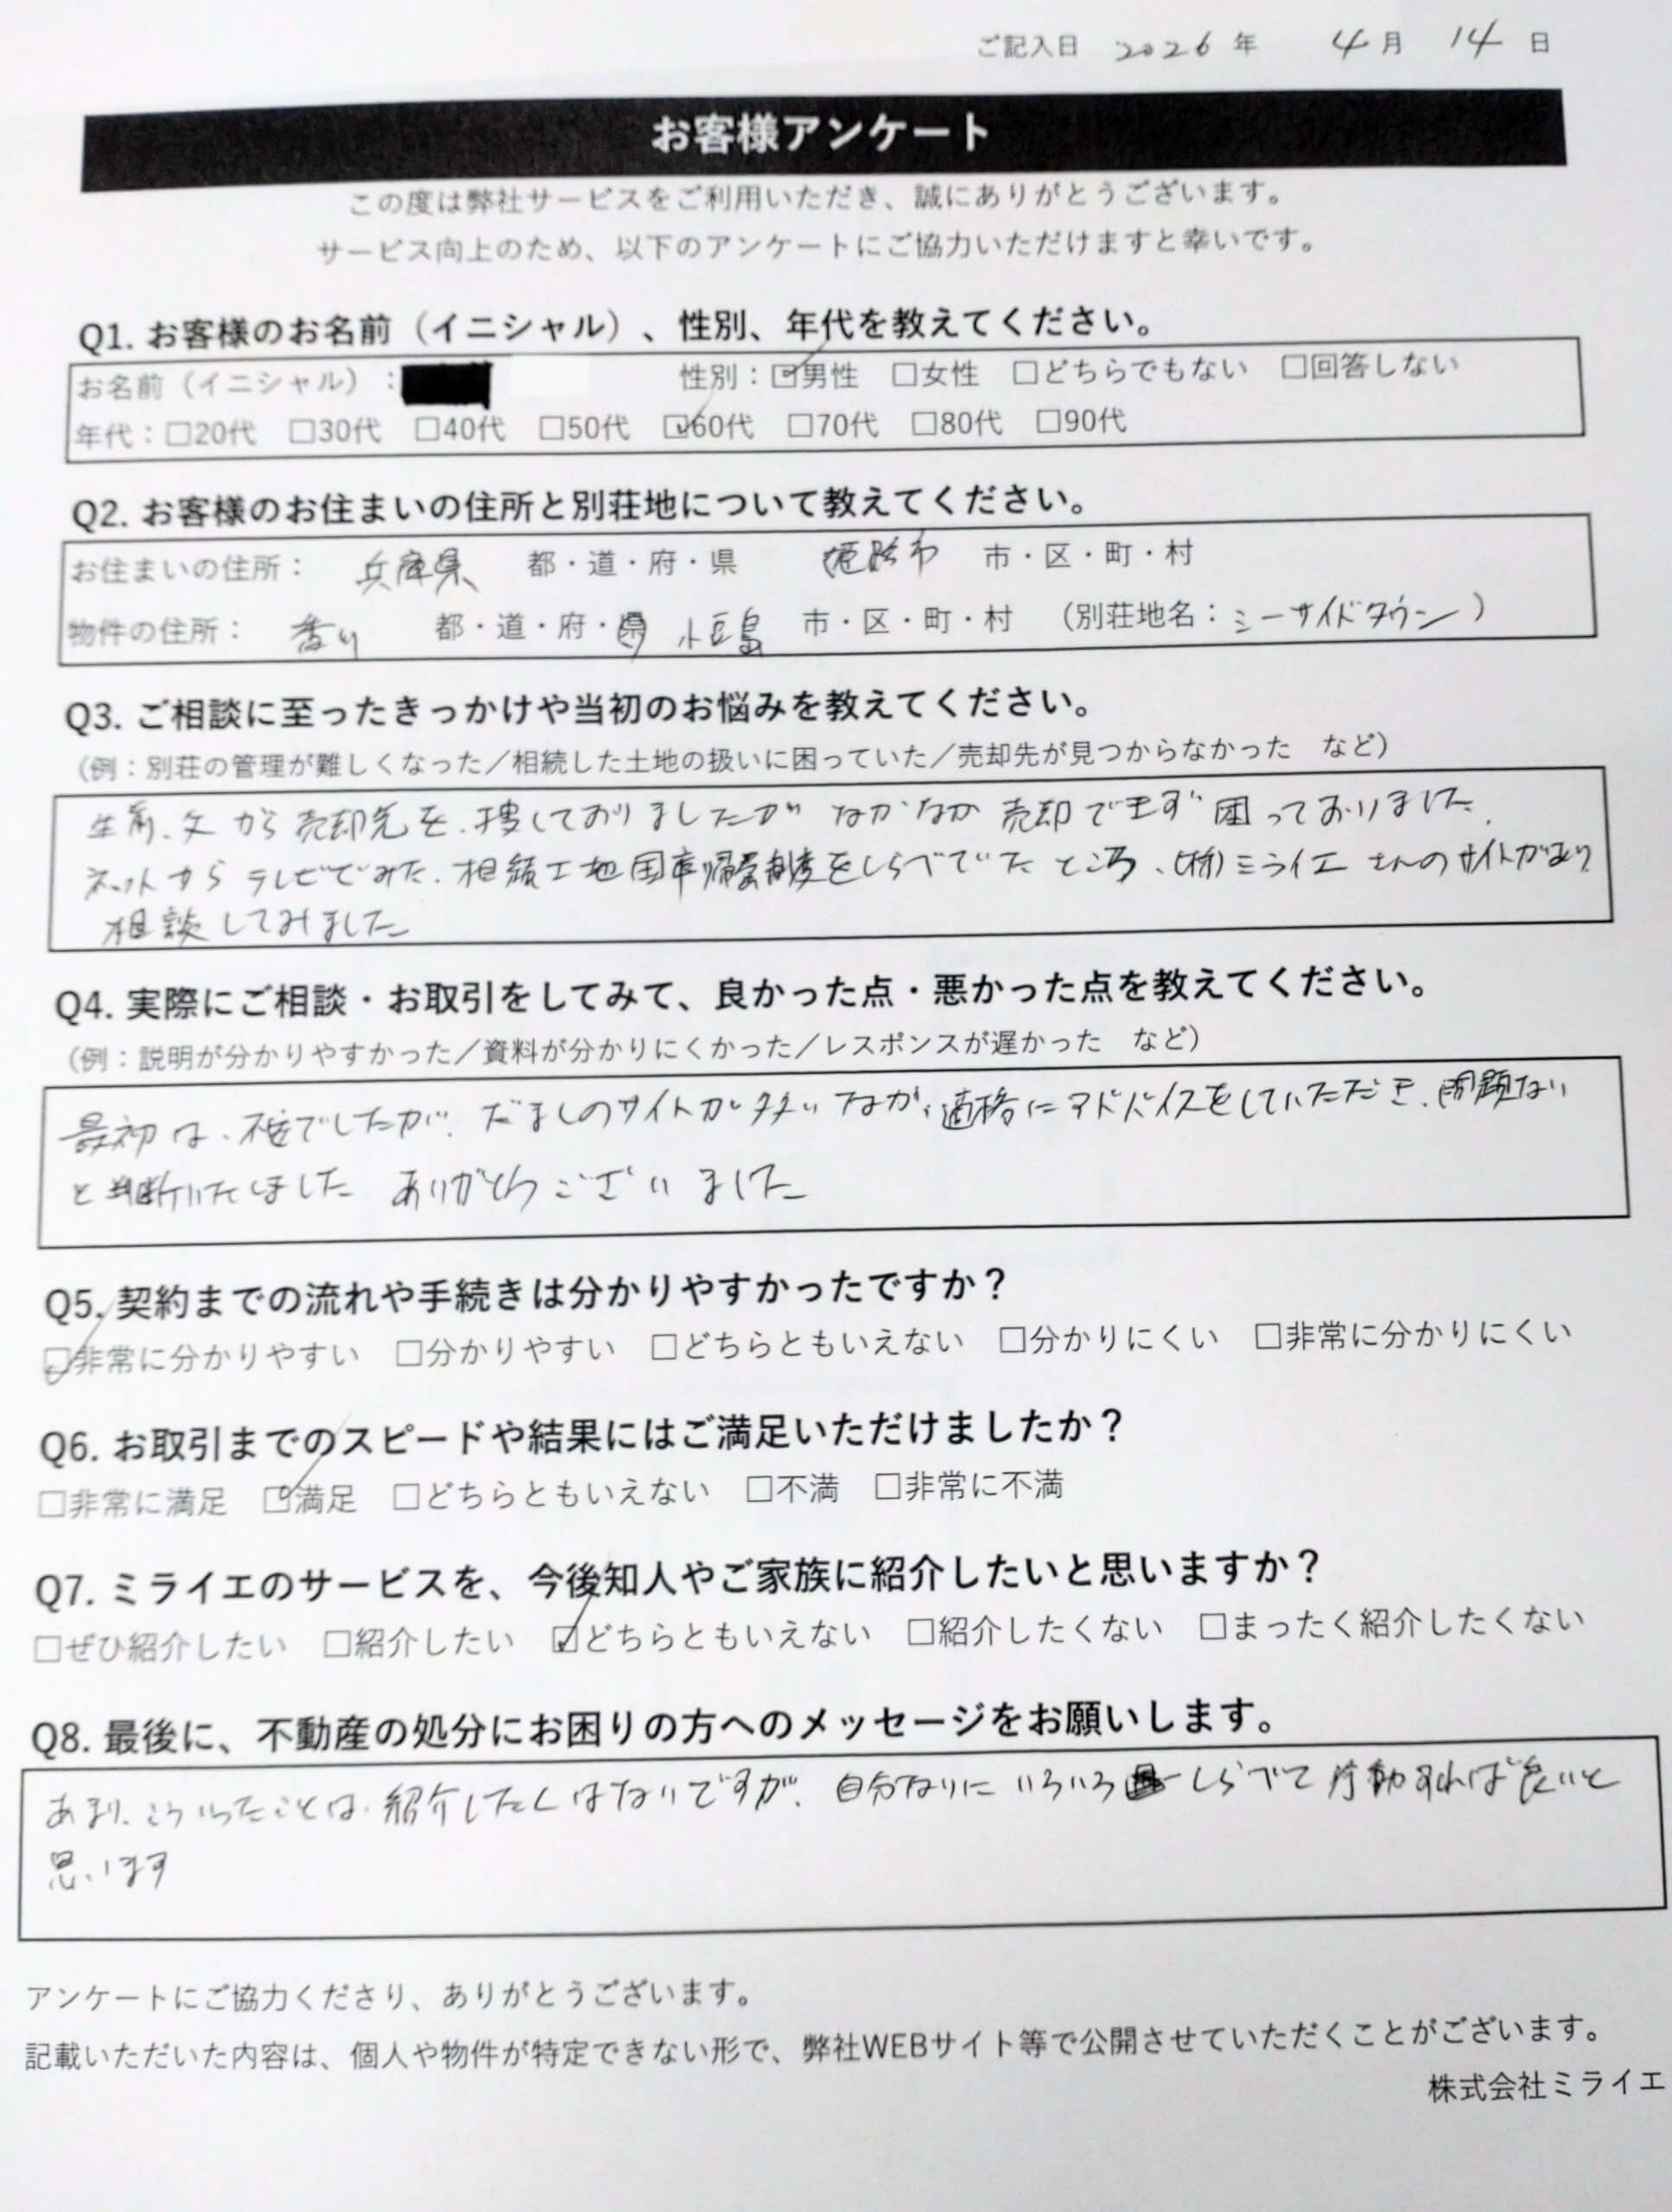 ご記入日 2026 年 4 月 14 日
お客様アンケート
この度は弊社サービスをご利用いただき、誠にありがとうございます。
サービス向上のため、以下のアンケートにご協力いただけますと幸いです。
Q1. お客様のお名前（イニシャル）、性別、年代を教えてください。
お名前（イニシャル）： 性別：☑男性 □女性 □どちらでもない □回答しない
年代：□20代 □30代 □40代 □50代 ☑60代 □70代 □80代 □90代
Q2. お客様のお住まいの住所と別荘地について教えてください。
お住まいの住所： 兵庫県 都・道・府・県 姫路市 市・区・町・村
物件の住所： 香川 都・道・府・県 小豆島 市・区・町・村 （別荘地名：シーサイドタウン）
Q3. ご相談に至ったきっかけや当初のお悩みを教えてください。
（例：別荘の管理が難しくなった／相続した土地の扱いに困っていた／売却先が見つからなかった など）
生前、父から売却先を、捜しておりましたが なかなか 売却できず 困っておりました、
ネットから テレビでみた、相続土地国庫帰属制度をしらべてた ところ、(株)ミライエ さんのサイトがあり
相談してみました
Q4. 実際にご相談・お取引をしてみて、良かった点・悪かった点を教えてください。
（例：説明が分かりやすかった／資料が分かりにくかった／レスポンスが遅かった など）
最初は、不安でしたが、だましのサイトが多い なか、適格にアドバイスをしていただき、問題ない
と判断いたしました ありがとうございました
Q5. 契約までの流れや手続きは分かりやすかったですか？
☑非常に分かりやすい □分かりやすい □どちらともいえない □分かりにくい □非常に分かりにくい
Q6. お取引までのスピードや結果にはご満足いただけましたか？
□非常に満足 ☑満足 □どちらともいえない □不満 □非常に不満
Q7. ミライエのサービスを、今後知人やご家族に紹介したいと思いますか？
□ぜひ紹介したい □紹介したい ☑どちらともいえない □紹介したくない □まったく紹介したくない
Q8. 最後に、不動産の処分にお困りの方へのメッセージをお願いします。
あまり、こういったことは、紹介したくはないですが、自分なりに いろいろ しらべて 行動すれば良いと
思います
アンケートにご協力くださり、ありがとうございます。
記載いただいた内容は、個人や物件が特定できない形で、弊社WEBサイト等で公開させていただくことがございます。
株式会社ミライエ